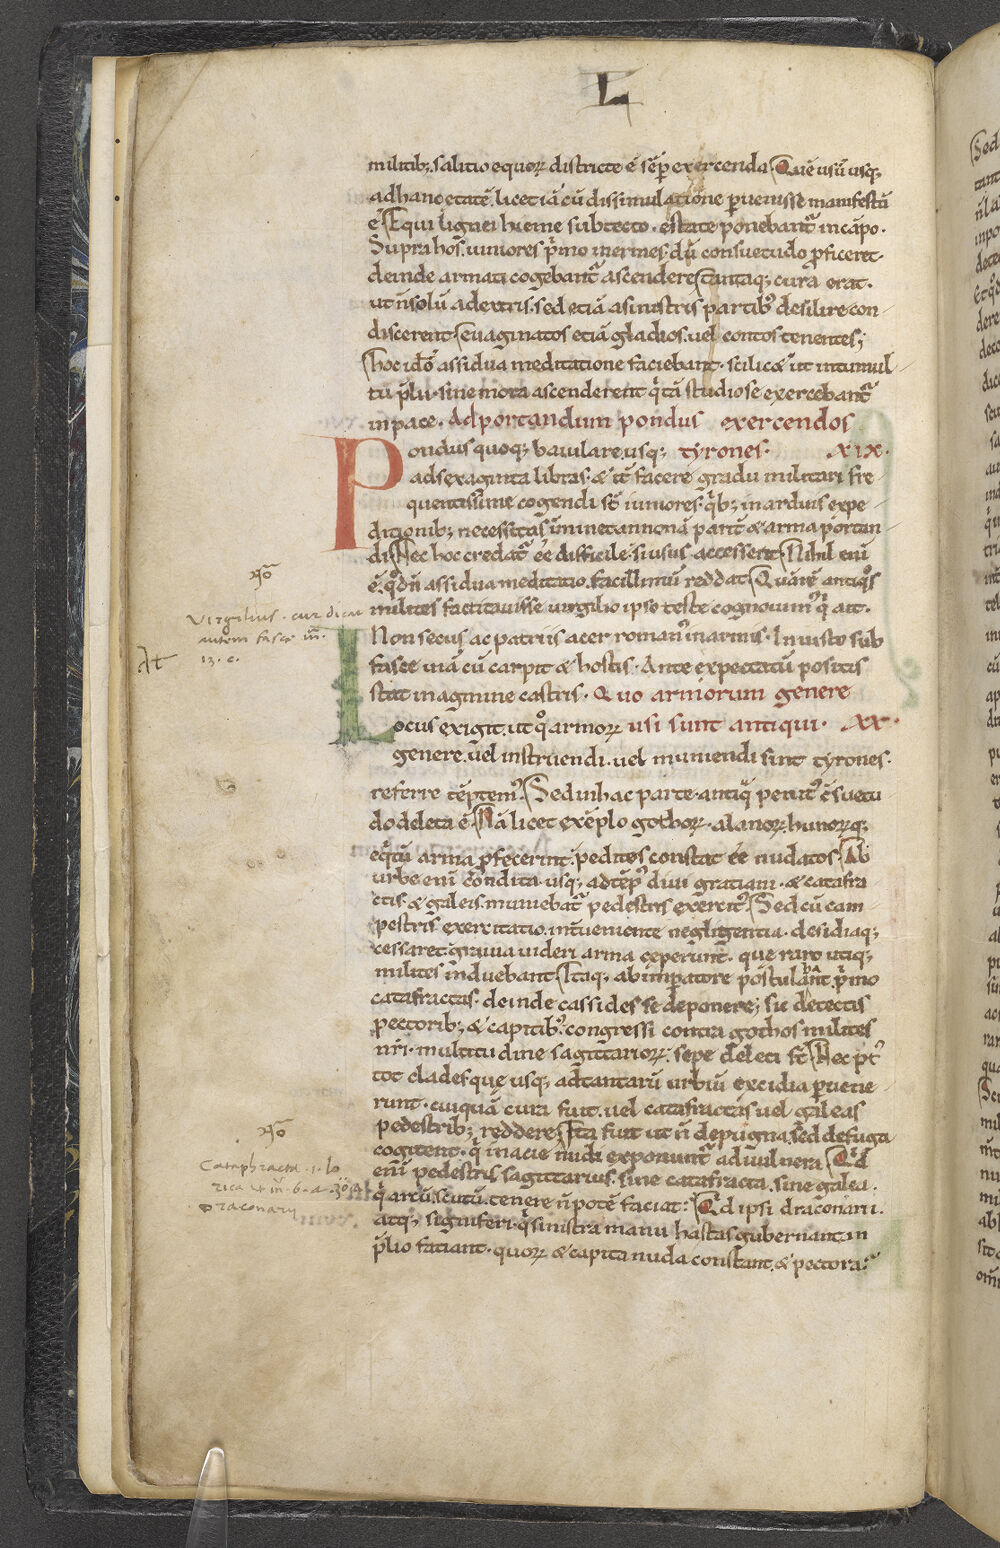 L
militib; salitio equoꝝ districte ē sēp exercenda Quē usū usq;
ad hanc etatē, licet iā cū dissimulatione puenisse manifestū
ē Equi lignei hieme sub tecto, estate ponebant᷑ in cāpo.
Supra hos iuniores p̄mo inermes, dū consuetudo p̄ficeret.
deinde armati cogebant᷑ ascendere tantaq; cura erat.
ut ñ solū a dextris, sed etiā a sinistris partib᷒ desilire con
discerent evaginatos etiā gladios, uel contos tenentes;
hoc id̄o assidua meditatione faciebant. scilicet ut in tumul
tu p̄lii, sine mora ascenderent q̄ tā studiose exercebant᷑
in pace. Ad portandum pondus exercendos
Pondus quoq; baiulare, usq; tyrones. XIX.
ad sexaginta libras, & it̄ facere gradu militari fre
quentissime cogendi st̄ iuniores, q̄b; in arduis expe
ditionib; necessitas īminet annonā parit̄ & arma portan
di Nec hoc credat᷑ ēe difficile, si usus accesserit Nihil enī
ē, qd̄ ñ assidua meditatio facillimū reddat Quā rē antiq̊s
milites factitauisse uirgilio ipso teste cognouim᷒ q̄ ait.
Non secus ac patriis acer roman᷒ in armis. Iniusto sub
fasce uiā cū carpit & hostis. Ante expectatū positis
stat in agmine castris. Quo armorum genere
Locus exigit, ut q̊ armoꝝ usi sunt antiqui. XX.
genere, uel instruendi, uel muniendi sint tyrones.
referre tēptem᷒. Sed in hac parte antiq̄ penit᷒ ɔ̄suetu
do deleta ē Nā licet exēplo gothoꝝ, alanoꝝ, hunoꝝq;
eq̄tū arma p̄fecerint, pedites constat ēe nudatos Ab
urbe enī condita, usq; ad tēp᷒ diui gratiani, & catafra
ctis, & galeis muniebat᷑ pedestris exercit᷒. Sed cū cam
pestris exercitatio, int̄ueniente negligentia, desidiaq;
cessaret, grauia uideri arma ceperunt, que raro utiq;
milites induebant Itaq; ab impatore postulant p̄mo
catafractas, deinde cassides se deponere; sic detectis
pectorib; & capitib᷒ congressi contra gothos milites
nr̄i, multitudine sagittarioꝝ, sepe deleti st̄ Nec p᷒t
tot clades que usq; ad tantarū urbiū excidia puene
runt, cuiquā cura fuit, uel catafractas uel galeas
pedestrib; reddere; Ita fuit ut ñ de pugna, sed de fuga
cogitent, q̄ in acie nudi exponunt᷑ ad uulnera Qd̄
enī pedestris sagittarius, sine catafracta, sine galea,
q̄ arcū, scutū, tenere ñ potē faciat? Qd̄ ipsi draconarii,
atq; signiferi, q̄ sinistra manu hastas gubernant in
p̄lio faciant, quoꝝ & capita nuda constant & pectora?
Virgilius. cur dicat
autem fasce
13. c.
At
Cataphracta .i. lo
rica
Draconarii